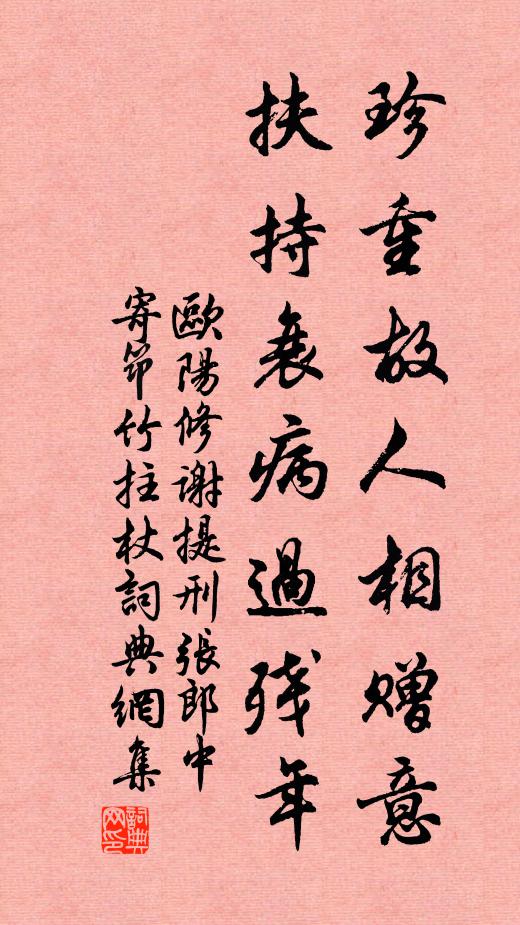 珍重故人相赠意
扶持衰病過残年
歐陽修謝提刑張郎中
寄筇竹拄杖詞典網集
詞典
网印